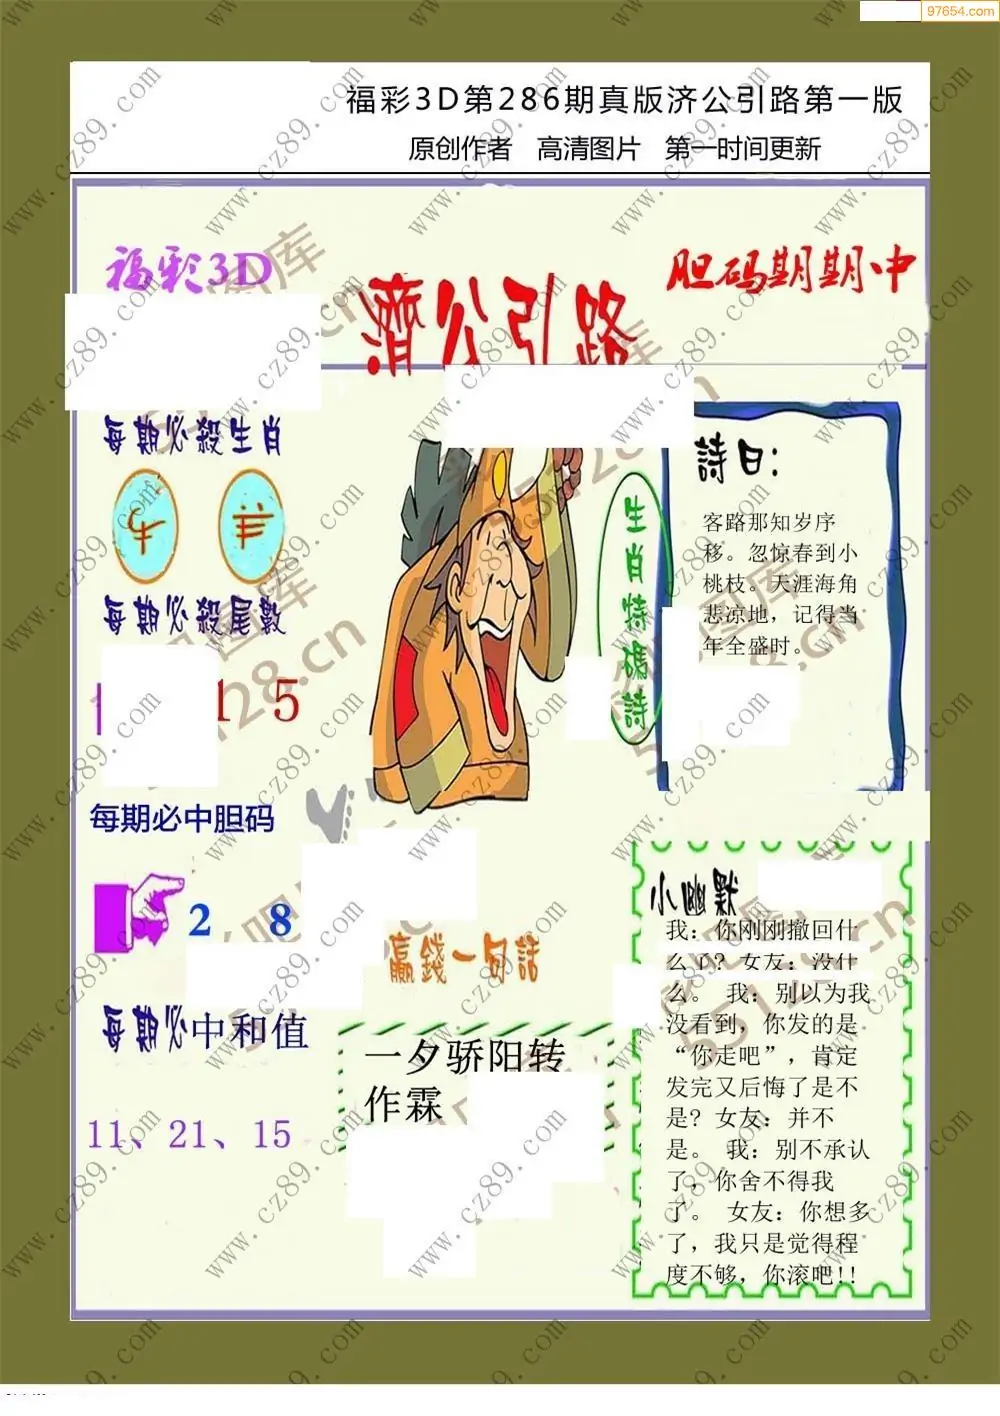 97654.com
福彩3D第286期真版济公引路第一版
原创作者 高清图片 第一时间更新
福彩3D
胆码期期中
濟公引路
每期必殺生肖
牛
羊
每期必殺尾數
1 5
每期必中胆码
2 8
每期必中和值
11、21、15
生肖特碼詩
詩曰:
客路那知岁序
移。忽惊春到小
桃枝。天涯海角
悲凉地，记得当
年全盛时。
赢錢一句話
一夕骄阳转
作霖
小幽默
我：你刚刚撤回什
么了? 女友：没什
么。 我：别以为我
没看到，你发的是
“你走吧”，肯定
发完又后悔了是不
是? 女友：并不
是。 我：别不承认
了，你舍不得我
了。 女友：你想多
了，我只是觉得程
度不够，你滚吧!!
www.cz89.com
55128.cn